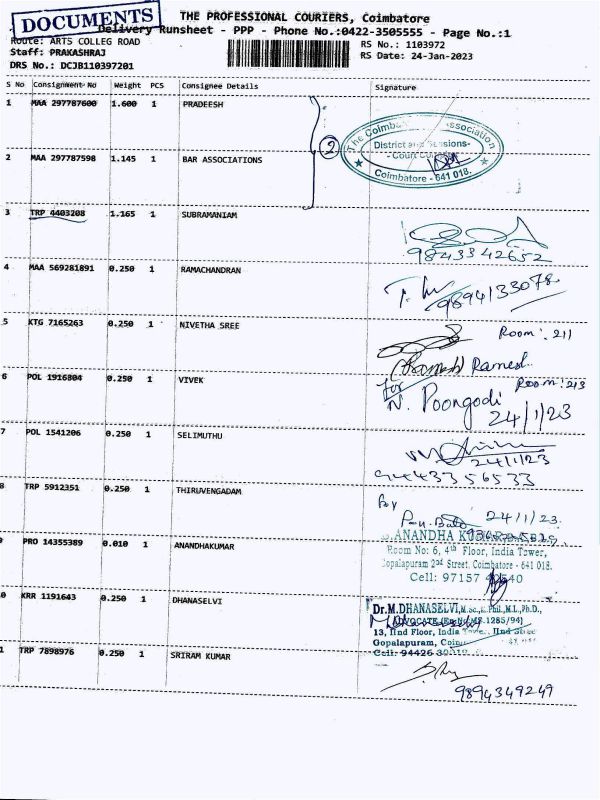 DOCUMENTS
THE PROFESSIONAL COURIERS, Coimbatore
Delivery Runsheet - PPP - Phone No.:0422-3505555 - Page No.:1
Route: ARTS COLLEG ROAD
Staff: PRAKASHRAJ
DRS No.: DCJB110397201
RS No.: 1103972
RS Date: 24-Jan-2023
S No Consignment No Weight PCS Consignee Details Signature
1 MAA 297787600 1.600 1 PRADEESH
2
The Coimbatore Association
District and Sessions-
- Court
Coimbatore - 641 018.
2 MAA 297787598 1.145 1 BAR ASSOCIATIONS
3 TRP 4403208 1.165 1 SUBRAMANIAM
9843342652
4 MAA 569281891 0.250 1 RAMACHANDRAN
9894133078
5 KTG 7165263 0.250 1 NIVETHA SREE
Room: 211
(Ramesh) Ramesh
6 POL 1916804 0.250 1 VIVEK
Room: 213
for
N. Poongodi
24/1/23
7 POL 1541206 0.250 1 SELIMUTHU
24/1/23
9443356533
8 TRP 5912351 0.250 1 THIRUVENGADAM
For
24/1/23.
9 PRO 14355389 0.010 1 ANANDHAKUMAR
ANANDHA
Room No: 6, 4th Floor, India Tower,
Gopalapuram 2nd Street, Coimbatore - 641 018.
Cell: 97157
0 KRR 1191643 0.250 1 DHANASELVI
Dr.M.DHANASELVI, M.Sc., M.Phil., M.L., Ph.D.,
ADVOCATE (En.No.MS.1285/94)
13, IInd Floor, India Tower, IInd Street
Gopalapuram,
Cell: 94426
1 TRP 7898976 0.250 1 SRIRAM KUMAR
9894349249